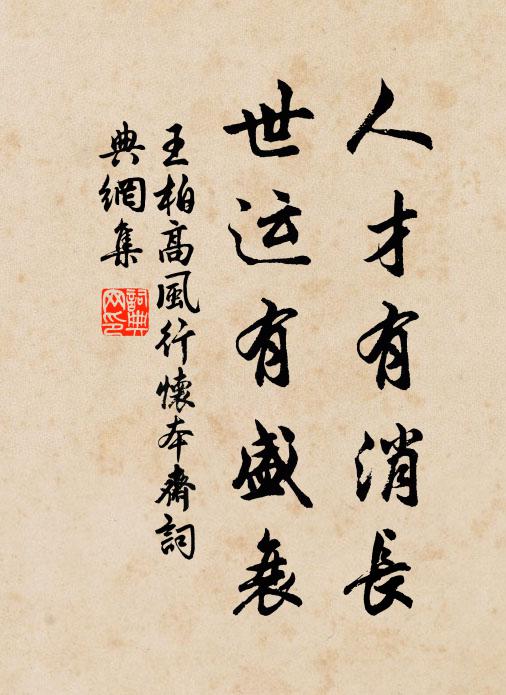 人才有消长
世运有盛衰
王柏高風行懷本齋詞
典網集
詞典网印